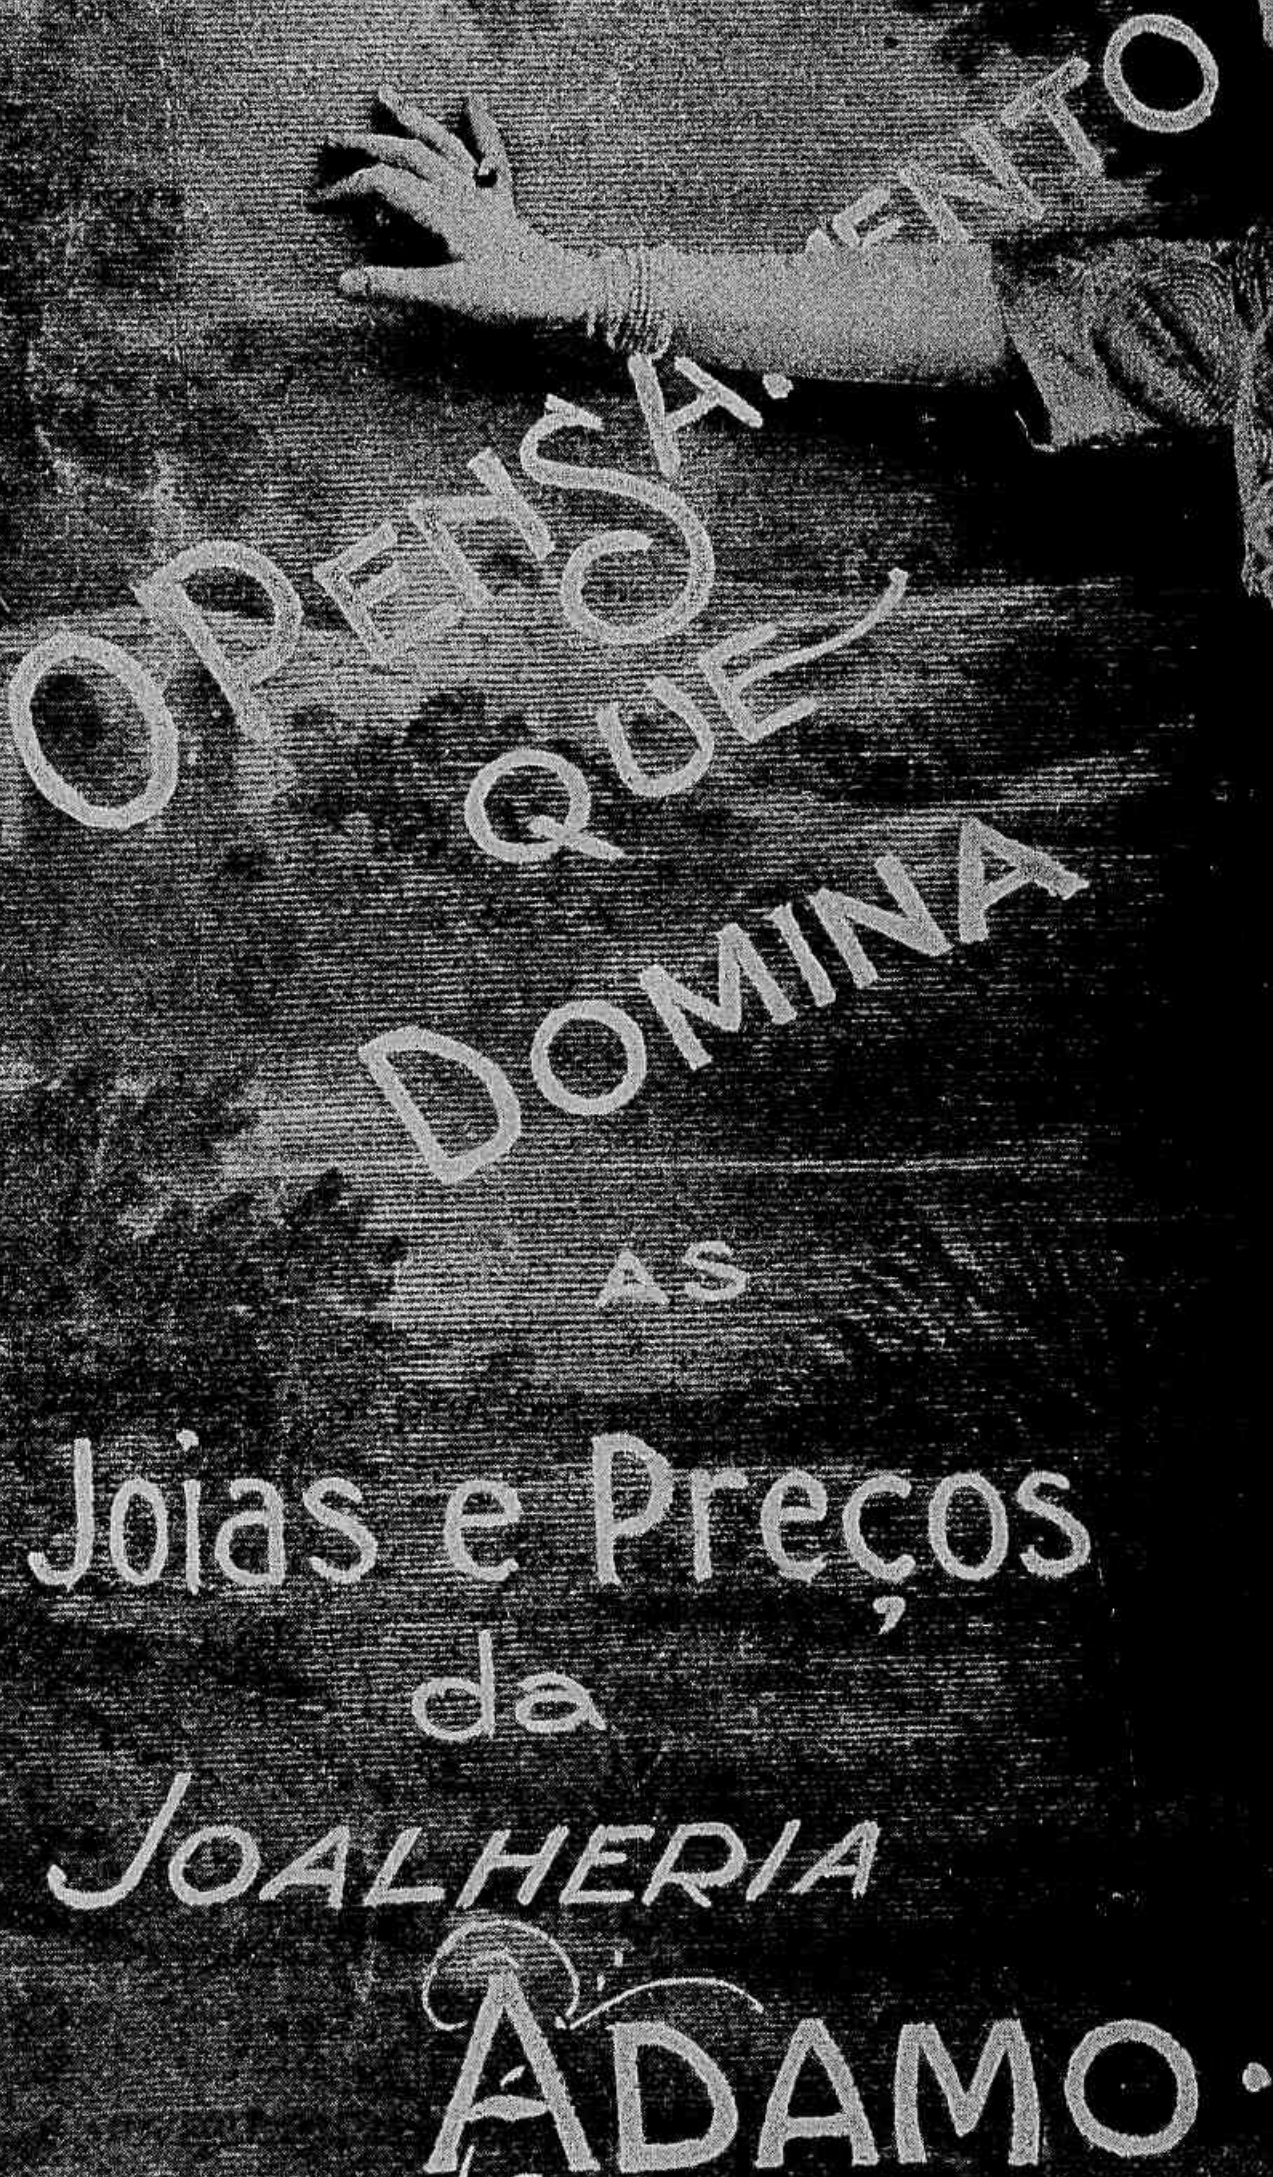 O PENSAMENTO
QUE
DOMINA
AS
Joias e Preços
da
JOALHERIA
ADAMO.